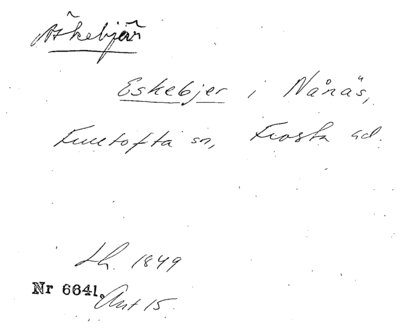 Äskebjär
Eskebjer i Nånäs,
Fulltofta sn, Frosta hd.
Lh. 1849
Nr 6641. Ant 15.